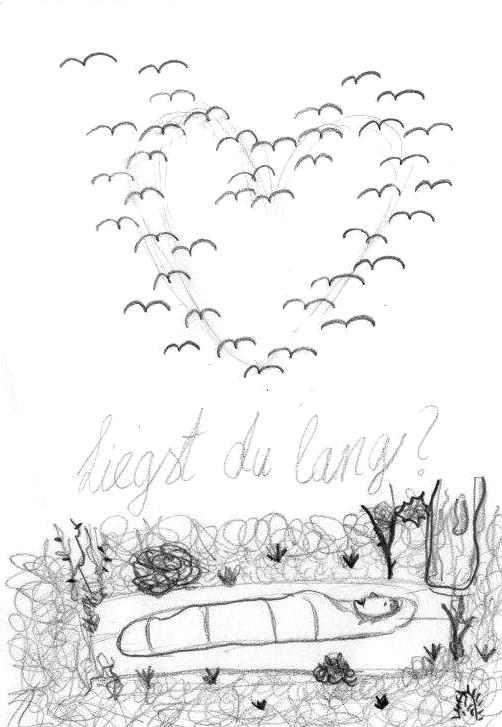 Liegst du lang?